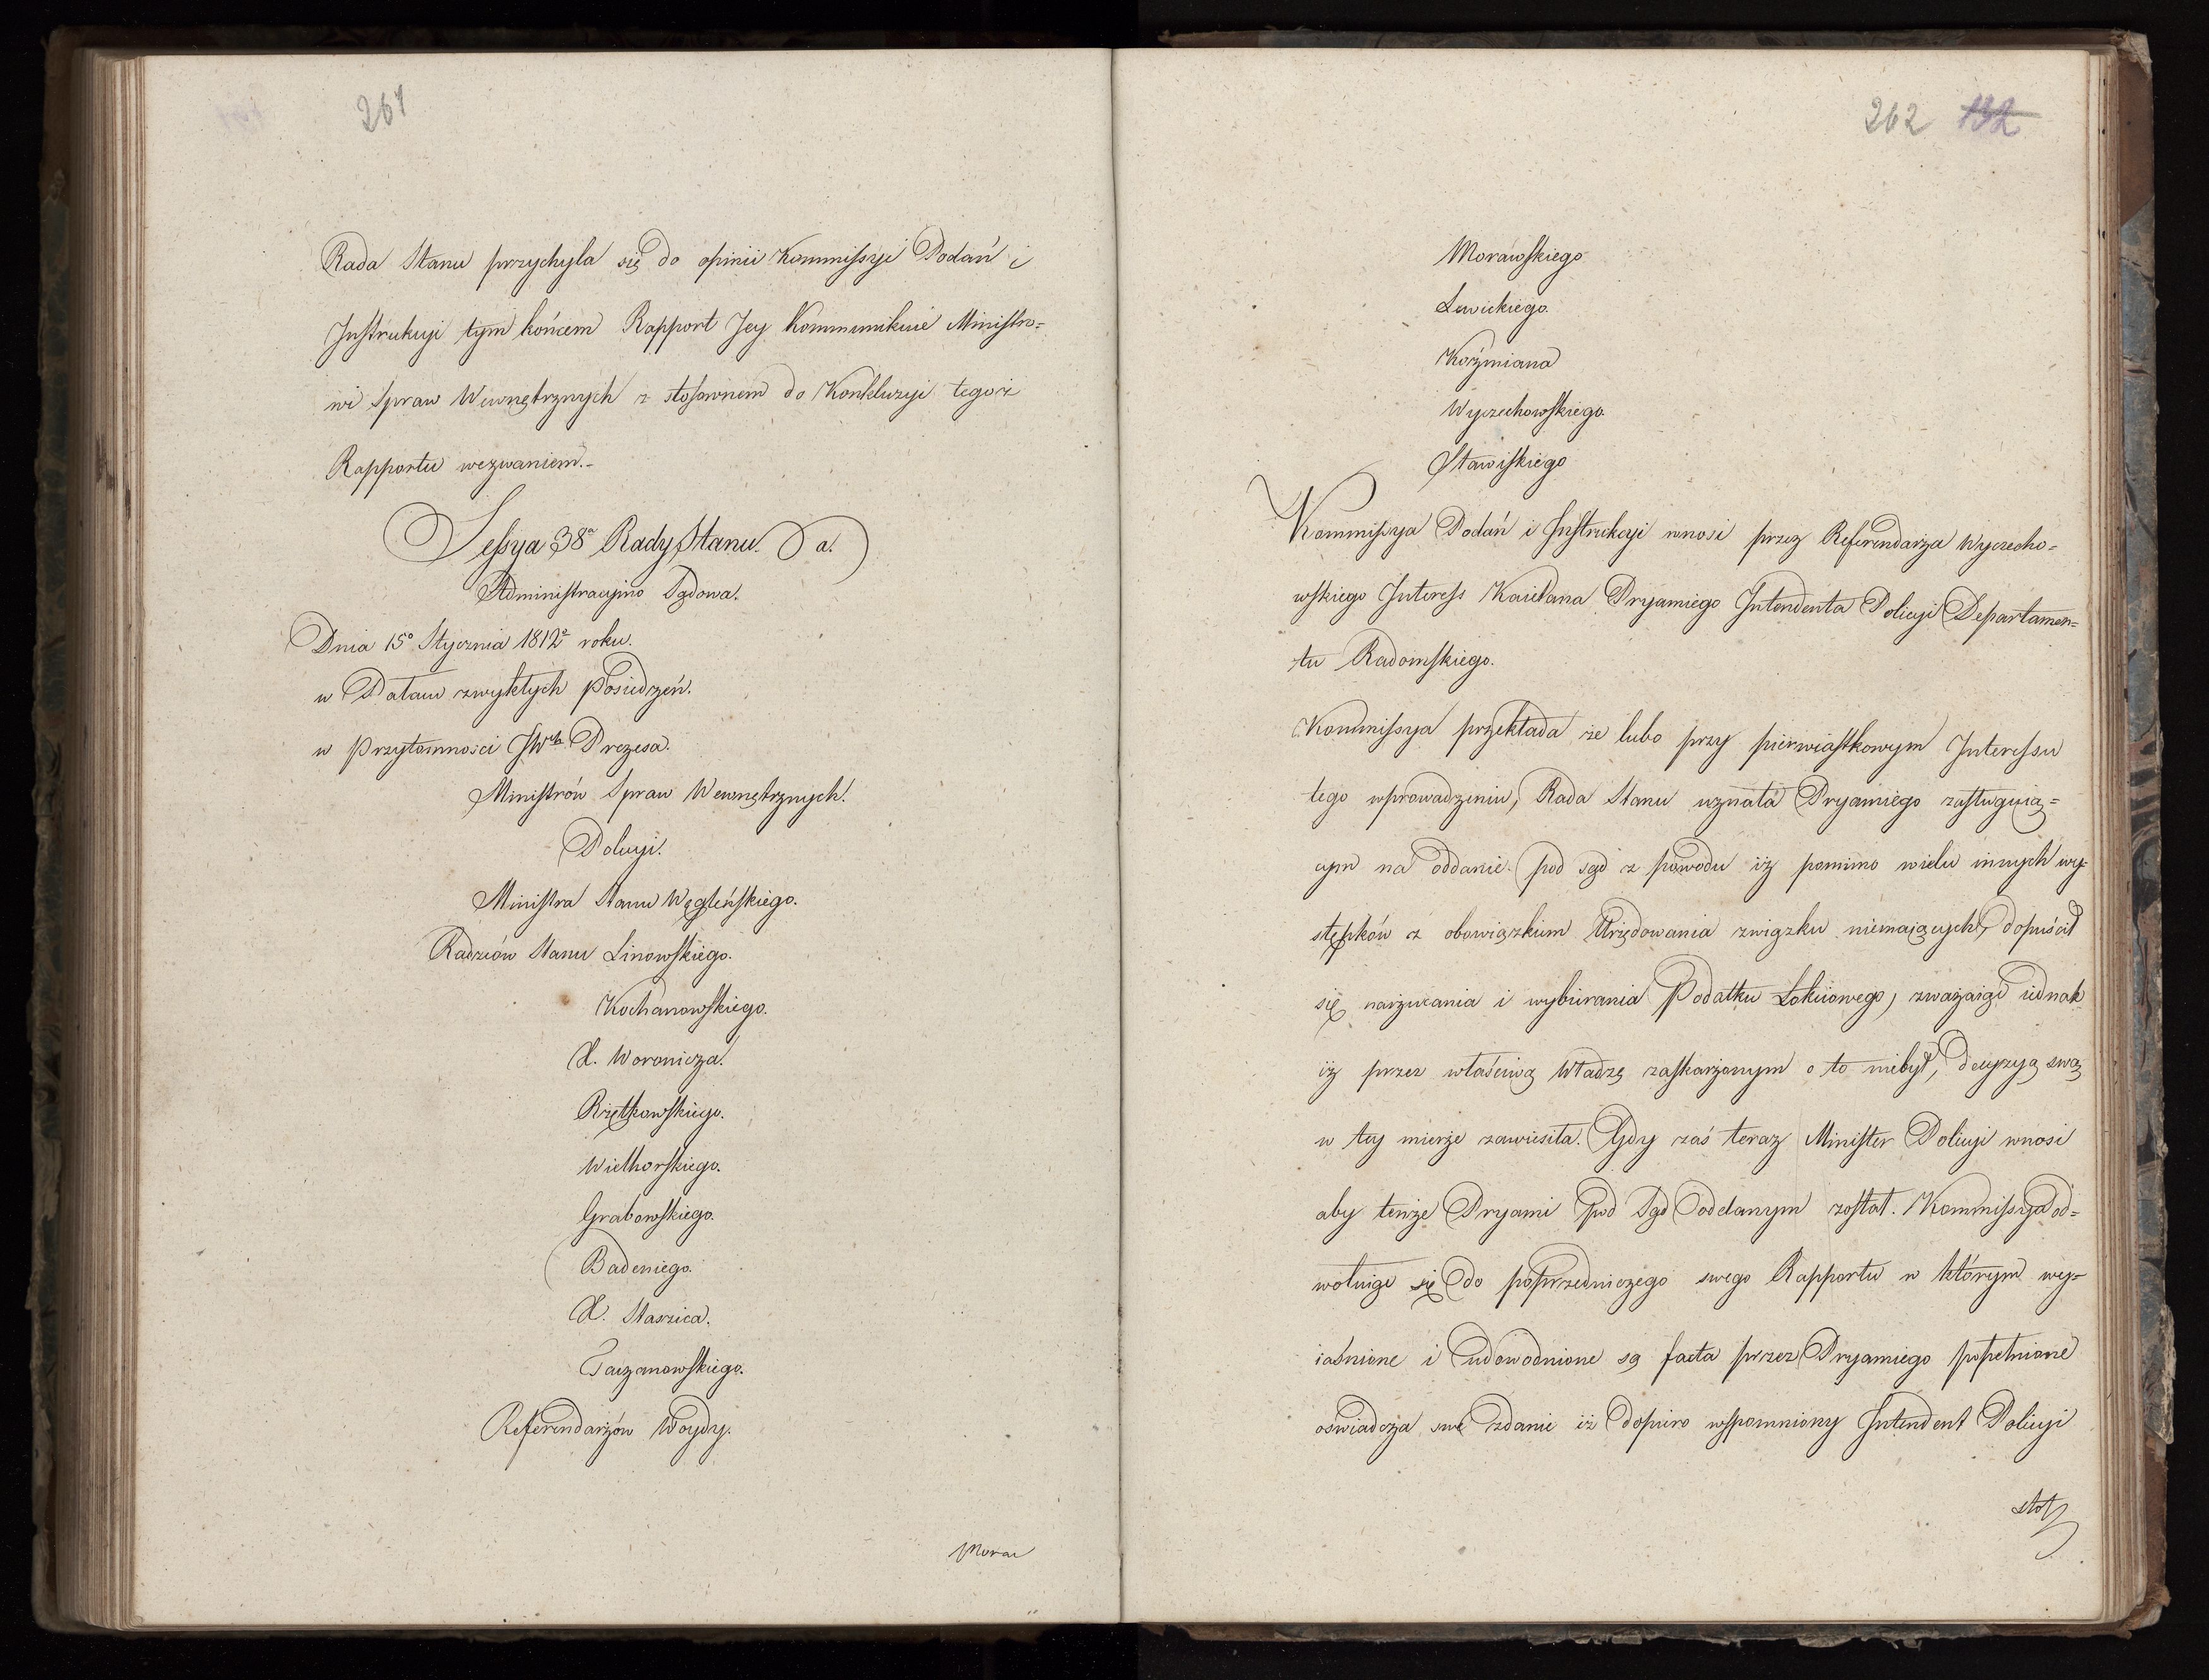 261
Rada Stanu przychyla się do opinii Kommissyi Podań i
Instrukcyi tym końcem Rapport Jey Kommunikuie Ministro=
wi Spraw Wewnętrznych z stosownem do Konkluzyi tegoż
Rapportu wezwaniem.-
Sessya 38a Rady Stanu.
Administracyino Sądowa.
Dnia 15o Stycznia 1812o roku.
w Pałacu zwykłych Posiedzeń.
w Przytomności JWch Prezesa.
Ministrów Spraw Wewnętrznych.
Policyi.
Ministra Stanu Węgleńskiego.
Radzców Stanu Linowskiego.
Kochanowskiego.
X. Woronicza.
Rzętkowskiego.
Wielhorskiego.
Grabowskiego.
Badeniego.
X. Staszica.
Taczanowskiego.
Referendarzów Woydy.
Moraw
262 132
Morawskiego
Lewickiego.
Koźmiana
Wyczechowskiego.
Stawiskiego
Kommissya Podań i Instrukcyi wnosi przez Referendarza Wyczecho=
wskiego Interess Kaietana Pryamiego Intendenta Policyi Departamen=
tu Radomskiego.
Kommissya przekłada że lubo przy pierwiastkowym Interessu
tego wprowadzeniu, Rada Stanu uznała Pryamiego zasługuią=
cym na oddanie pod sąd z powodu iż pomimo wielu innych wy-
stępków z obowiązkiem Urzędowania związku niemaiących, dopuścił
się narzucania i wybierania Podatku Łokciowego, zważaiąc iednak
iż przez właściwą Władzę zaskarżonym o to niebył, decyzyą swą
w tey mierze zawiesiła. Gdy zaś teraz Minister Policyi wnosi
aby tenże Pryami pod Sąd oddanym został. Kommissya od=
wołuiąc się do poprzedniczego swego Rapportu w którym wy=
iaśnione i udowodnione są facta przez Pryamiego popełnione
oświadcza swe zdanie iż dopiero wspomniony Intendent Policyi